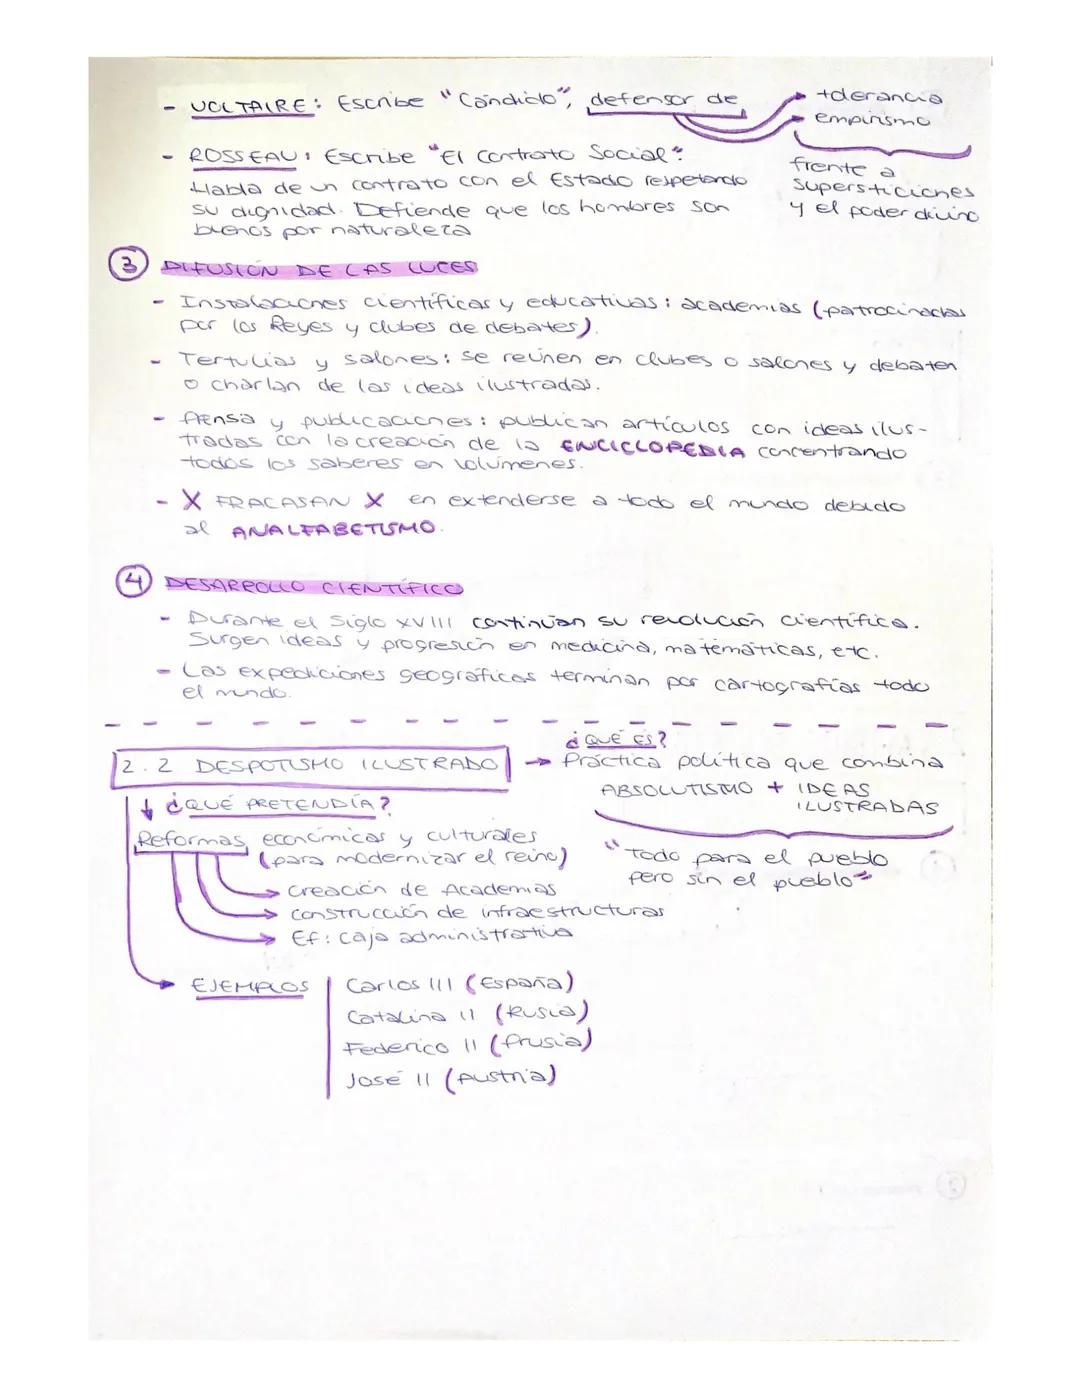 - VOLTAIRE: Escribe "Cándido", defensor de → tolerancia
→ empirismo
frente a
supersticiones
y el poder divino
- ROSSEAU: Escribe "El contrato Social".
Habla de un contrato con el Estado respetando
su dignidad. Defiende que los hombres son
buenos por naturaleza
3 DIFUSIÓN DE LAS LUCES
- Instalaciones científicas y educativas: academias (patrocinadas
por los Reyes y clubes de debates).
- Tertulias y salones: se reúnen en clubes o salones y debaten
o charlan de las ideas ilustradas.
- Prensa y publicaciones: publican artículos con ideas ilus-
tradas con la creación de la ENCICLOPEDIA concentrando
todos los saberes en volúmenes.
- X FRACASAN X en extenderse a todo el mundo debido
al ANALFABETISMO.
4 DESARROLLO CIENTÍFICO
- Durante el Siglo XVIII continúan su revolución científica.
Surgen ideas y progresión en medicina, matemáticas, etc.
- Las expediciones geográficas terminan por cartografías todo
el mundo.
2.2 DESPOTISMO ILUSTRADO → ¿QUÉ ES?
Práctica política que combina
ABSOLUTISMO + IDEAS
ILUSTRADAS
"Todo para el pueblo
pero sin el pueblo"
↓ ¿QUÉ PRETENDÍA?
Reformas económicas y culturales
(para modernizar el reino)
→ Creación de Academias
→ construcción de infraestructuras
→ Ef: caja administrativa
→ EJEMPLOS
Carlos III (España)
Catalina II (Rusia)
Federico II (Prusia)
José II (Austria)